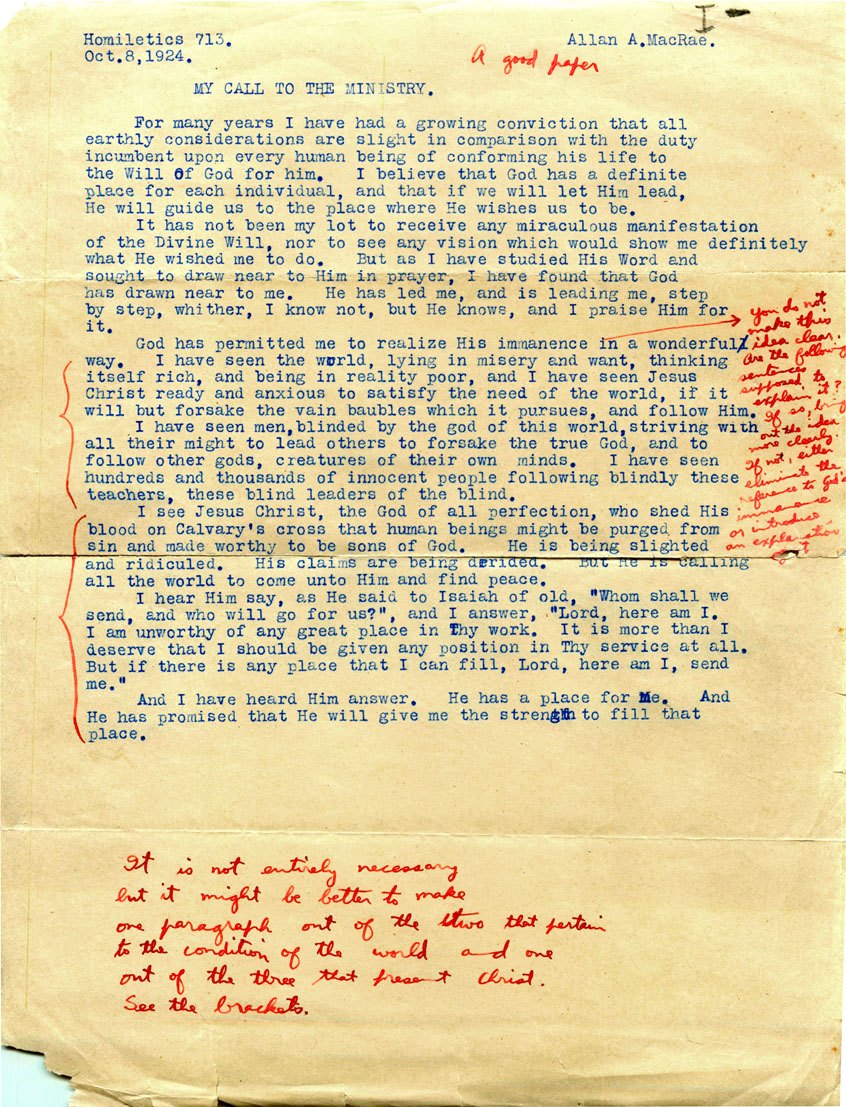 I-
Homiletics 713.                    Allan A.MacRae.
Oct.8,1924.
A good paper
MY CALL TO THE MINISTRY.
For many years I have had a growing conviction that all
earthly considerations are slight in comparison with the duty
incumbent upon every human being of conforming his life to
the Will Of God for him.  I believe that God has a definite
place for each individual, and that if we will let Him lead,
He will guide us to the place where He wishes us to be.
It has not been my lot to receive any miraculous manifestation
of the Divine Will, nor to see any vision which would show me definitely
what He wished me to do.  But as I have studied His Word and
sought to draw near to Him in prayer, I have found that God
has drawn near to me.  He has led me, and is leading me, step
by step, whither, I know not, but He knows, and I praise Him for
it.
God has permitted me to realize His immanence in a wonderful
way.  I have seen the world, lying in misery and want, thinking
itself rich, and being in reality poor, and I have seen Jesus
Christ ready and anxious to satisfy the need of the world, if it
will but forsake the vain baubles which it pursues, and follow Him.
I have seen men,blinded by the god of this world,striving with
all their might to lead others to forsake the true God, and to
follow other gods, creatures of their own minds.  I have seen
hundreds and thousands of innocent people following blindly these
teachers, these blind leaders of the blind.
I see Jesus Christ, the God of all perfection, who shed His
blood on Calvary's cross that human beings might be purged from
sin and made worthy to be sons of God.  He is being slighted
and ridiculed.  His claims are being derided.  But He is calling
all the world to come unto Him and find peace.
I hear Him say, as He said to Isaiah of old, "Whom shall we
send, and who will go for us?", and I answer, "Lord, here am I.
I am unworthy of any great place in Thy work.  It is more than I
deserve that I should be given any position in Thy service at all.
But if there is any place that I can fill, Lord, here am I, send
me."
And I have heard Him answer.  He has a place for Me.  And
He has promised that He will give me the strength to fill that
place.
you do not
make this
idea clear.
Are the following
sentences
supposed to
explain it?
If so, bring
out the idea
more clearly.
If not, either
eliminate the
reference to God's
immanence
or introduce
an explanation
of it
It is not entirely necessary
but it might be better to make
one paragraph out of the two that pertain
to the condition of the world and one
out of the three that present Christ.
See the brackets.